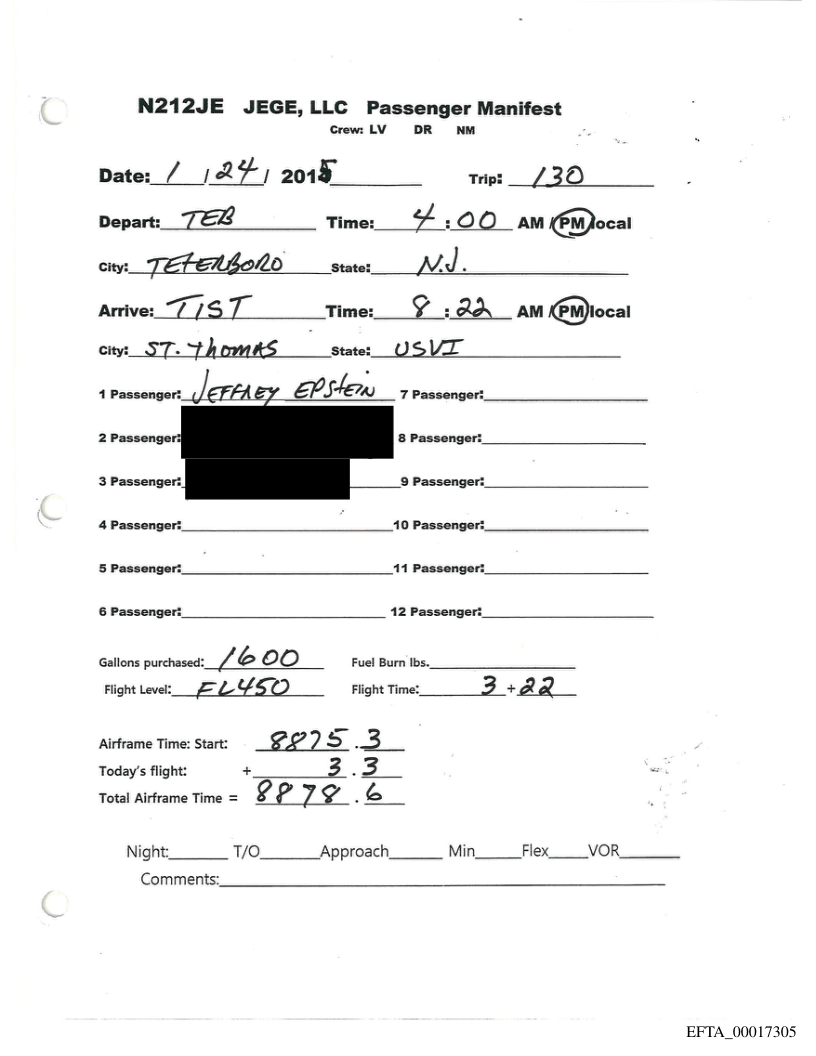 N212JE JEGE, LLC Passenger Manifest
Crew: LV DR NM
Date: 1 / 24 / 2015 Trip: 130
Depart: TEB Time: 4 : 00 AM / PM local
City: TETERBORO State: N.J.
Arrive: TIST Time: 8 : 22 AM / PM local
City: ST. Thomas State: USVI
1 Passenger: JEFFREY EPStEIN 7 Passenger:
2 Passenger: 8 Passenger:
3 Passenger: 9 Passenger:
4 Passenger: 10 Passenger:
5 Passenger: 11 Passenger:
6 Passenger: 12 Passenger:
Gallons purchased: 1600 Fuel Burn lbs.
Flight Level: FL450 Flight Time: 3 + 22
Airframe Time: Start: 8875 . 3
Today's flight: + 3 . 3
Total Airframe Time = 8878 . 6
Night: T/O Approach Min Flex VOR
Comments:
EFTA_00017305